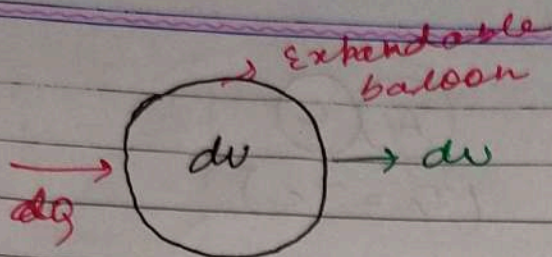 Expandable
baloon
du
dw
dQ